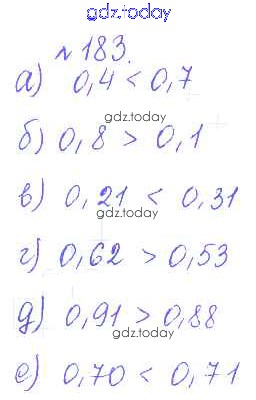 gdz.today
№ 183.
а) 0,4 < 0,7
gdz.today
б) 0,8 > 0,1
gdz.today
в) 0,21 < 0,31
gdz.today
г) 0,62 > 0,53
gdz.today
д) 0,91 > 0,88
gdz.today
е) 0,70 < 0,71